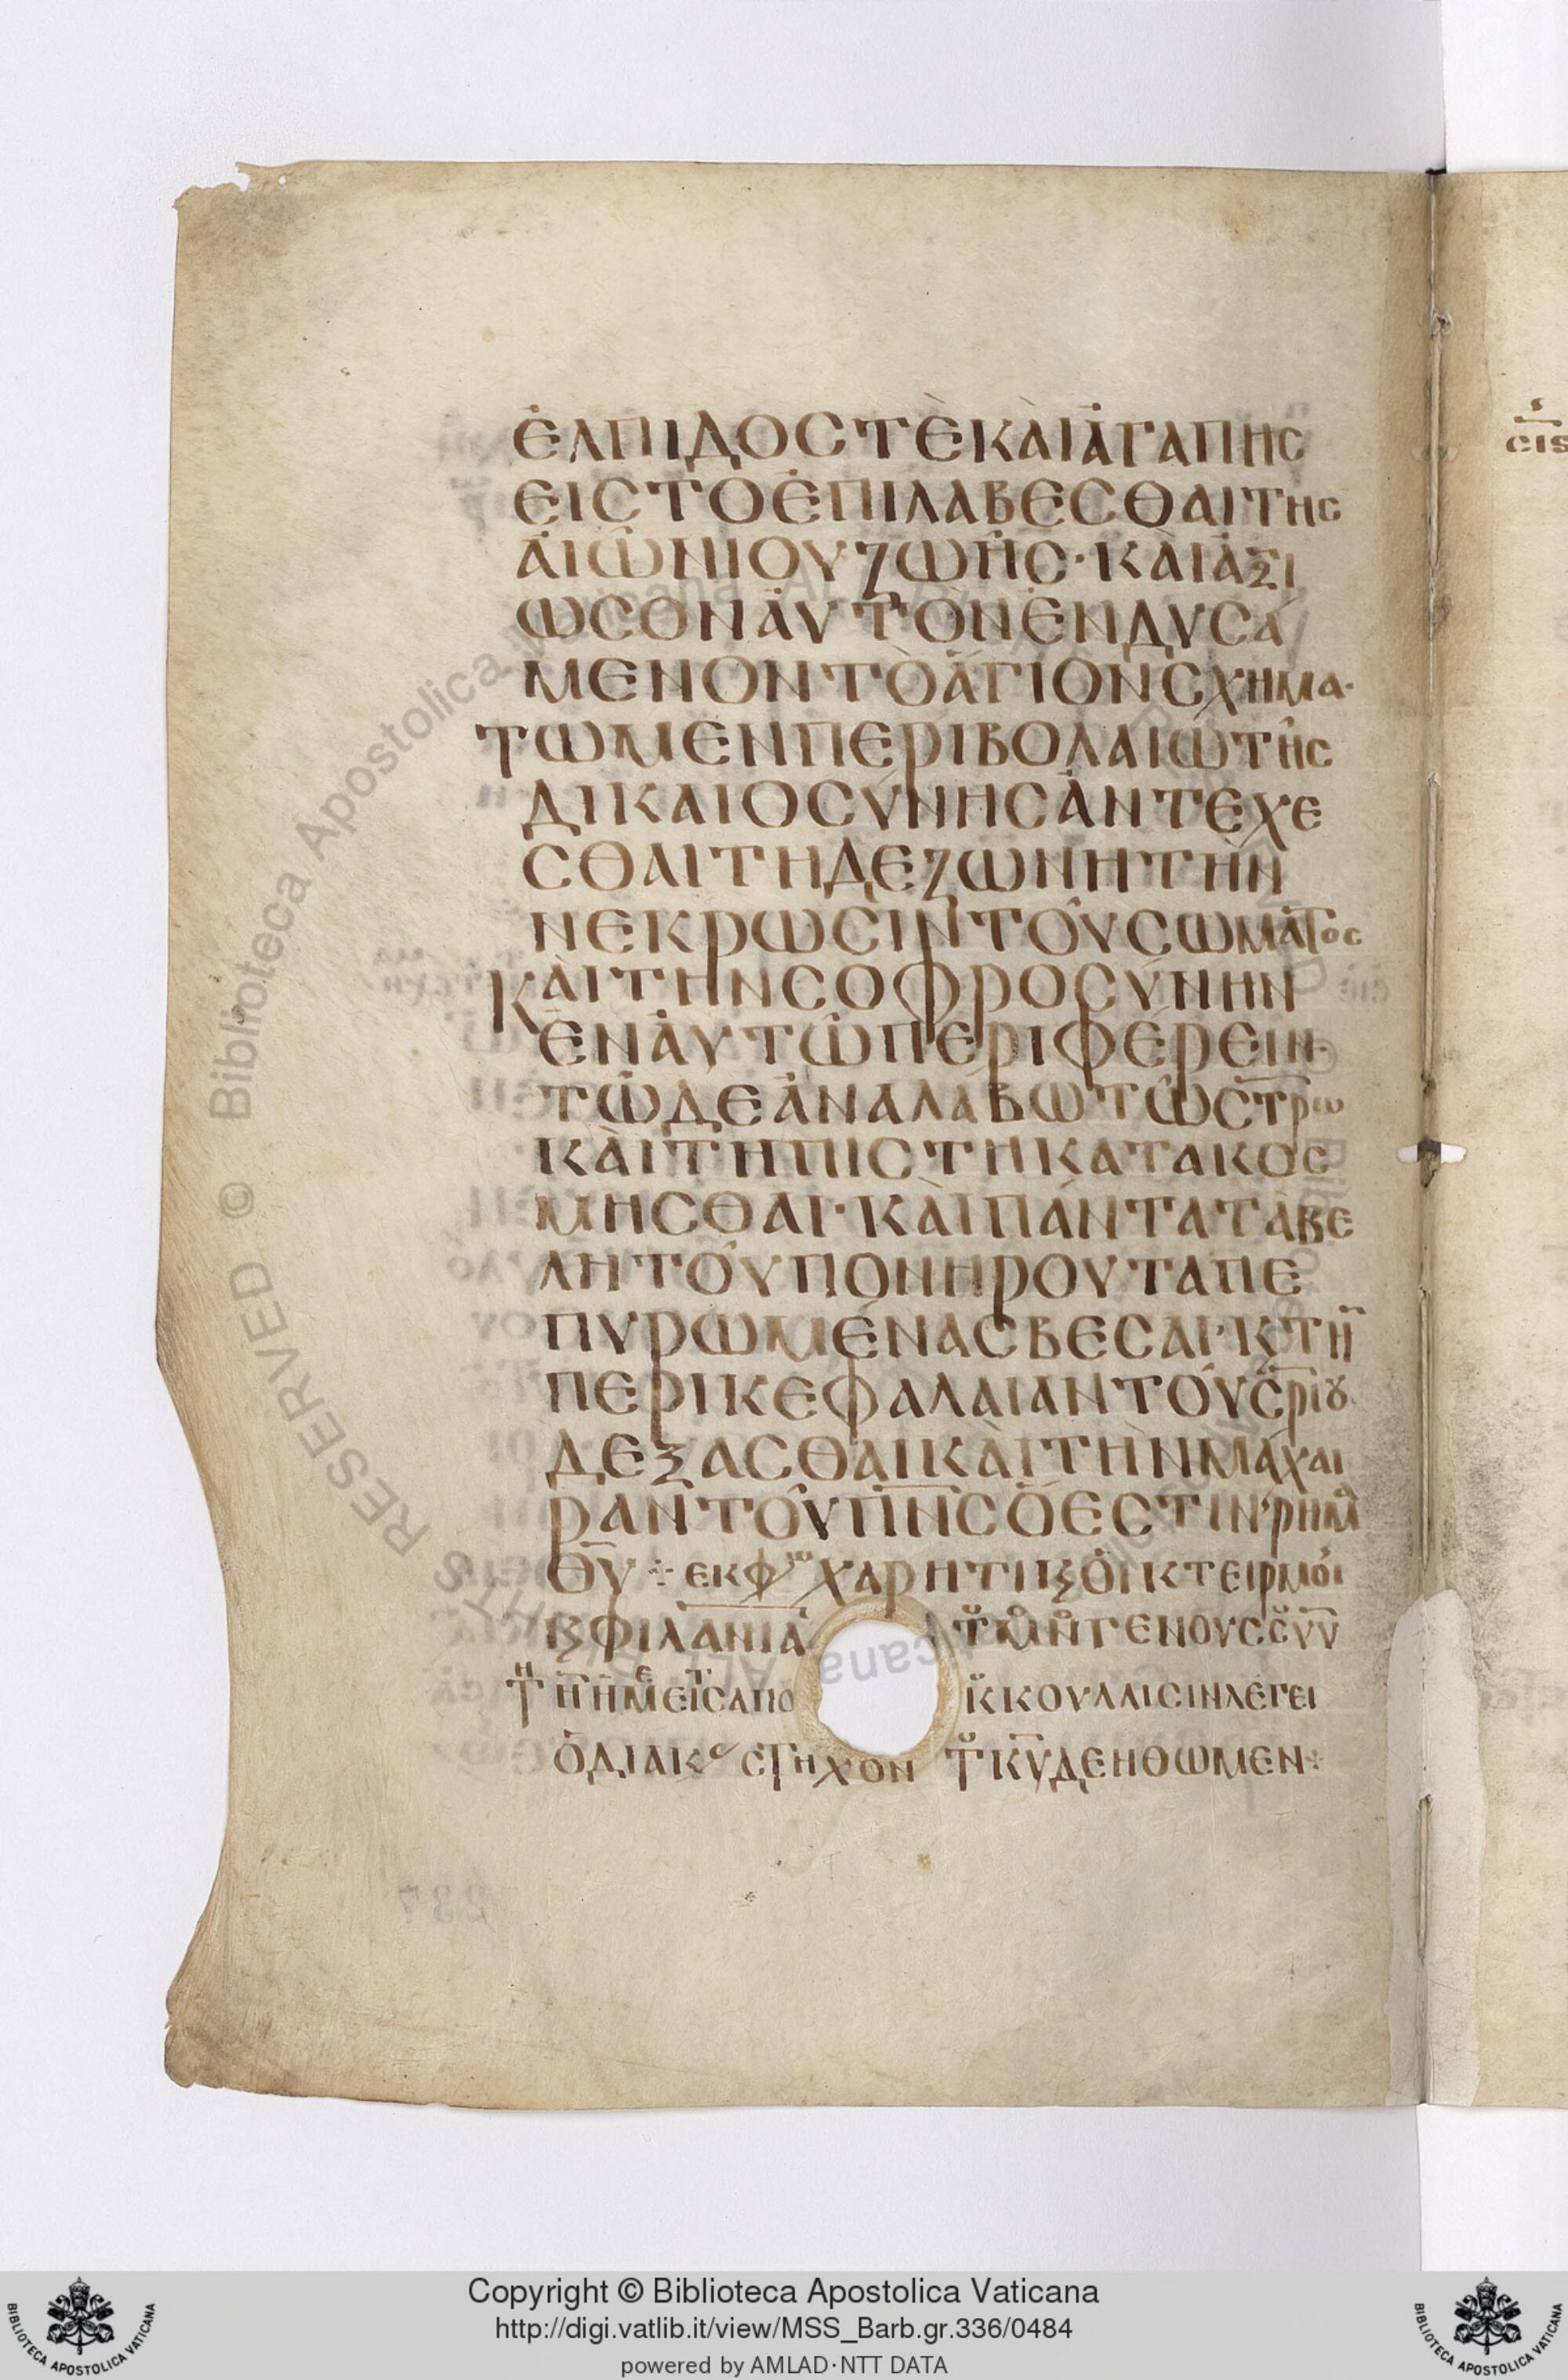 ἘΛΠΙΔΟCΤὲΚΑὶἈΓΑΠΗC
ΕΙCΤΟἘΠΙΛΑΒΕCΘΑΙΤΗC
ΑΙΩΝΙΟΥΖΩΗC·ΚΑὶἈΞΙ
ΩCΟΝἈΥΤΟΝἘΝΔΥCΑ
ΜΕΝΟΝΤὸἍΓΙΟΝCΧΗΜΑ·
ΤΩΜΕΝΠΕΡΙΒΟΛΑΙΩΤΗC
ΔΙΚΑΙΟCΎΝΗCἈΝΤΕΧΕ
CΘΑΙΤΗΔΕΖΩΝΗΤῊΝ
ΝΕΚΡΩCΙΝΤΟΥCΩΜΑΤΟC
ΚΑῚΤΗΝCΟΦΡΟCΎΝΗΝ
ἘΝἈΥΤΩΠΕΡΙΦΈΡΕΙΝ·
ΤΩΔΕἈΝΑΛΑΒΩΤΩCΤΡΩ
ΚΑῚΤΗΠΙCΤΗΚΑΤΑΚΟC
ΜΗCΘΑΙ·ΚΑῚΠΆΝΤΑΤΑΒΕ
ΛΗΤΟΥΠΟΝΗΡΟΥΤΑΠΕ
ΠΥΡΩΜΈΝΑCΒΕCΑΙ·ΚΤΗ
ΠΕΡΙΚΕΦΑΛΑΙΑΝΤΟΥCΡΙȣ
ΔΕΞΑCΘΑΙΚΑῚΤῊΝΜΑΧΑΙ
ΡΑΝΤΟΥΠΝCὍΕCΤΙΝΡΗΜΑ
ΘΥ ⁘ ΕΚΦΩ ΧΑΡΗΤΙϗὈΙΚΤΕΙΡΜΟΙ
ϗΦΙΛΑΝΙΑ ΤΜΝΓΕΝΟΥCCΥΥ
ΤΗΗΜΕΙCΑΠΟ ΚΚΟΥΛΛΙCΙΝΛΕΓΕΙ
ὉΔΙΑΚ CΤΗΧΟΝ ΤΚΥΔΕΗΘΩΜΕΝ⁘
CΙC
Copyright © Biblioteca Apostolica Vaticana
http://digi.vatlib.it/view/MSS_Barb.gr.336/0484
powered by AMLAD·NTT DATA